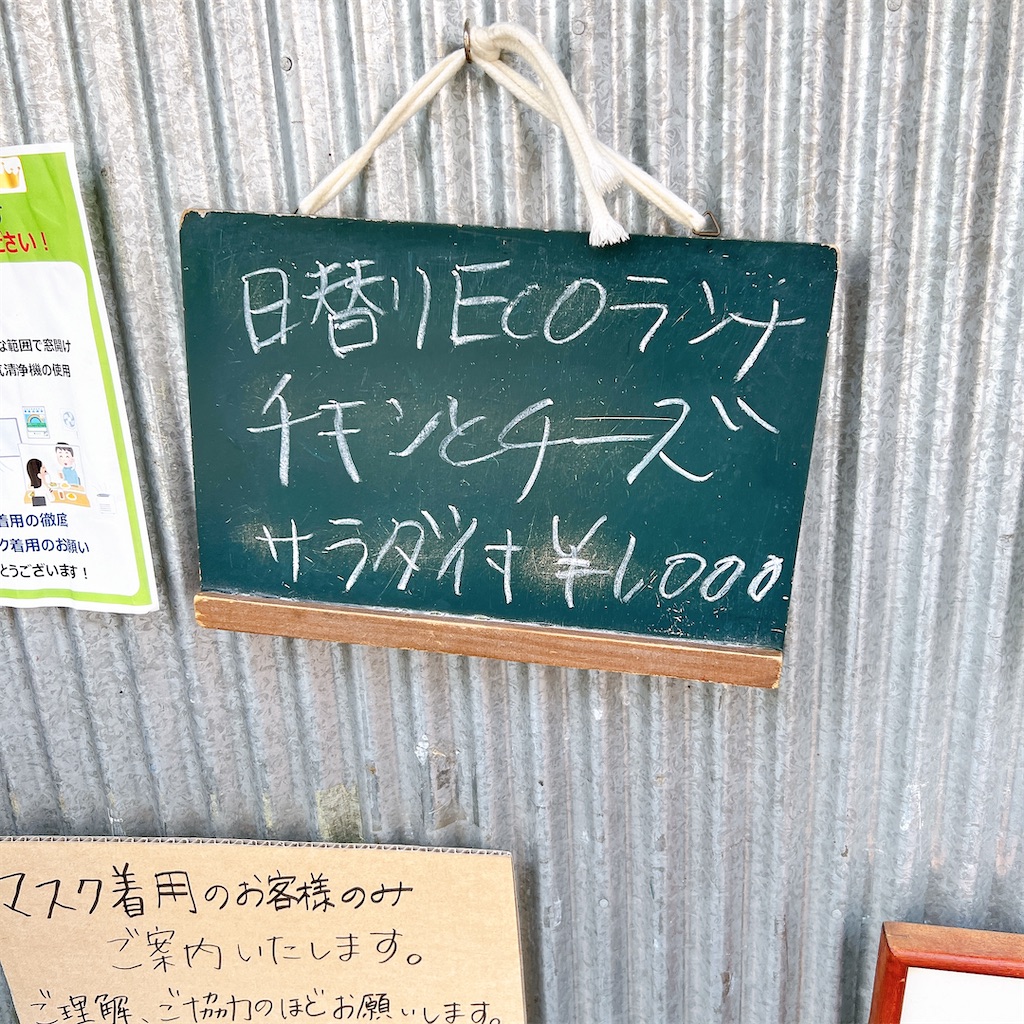 日替りECOランチ
チキンとチーズ
サラダ付 ¥1,000
ださい!
な範囲で窓開け
気清浄機の使用
着用の徹底
ク着用のお願い
とうございます!
マスク着用のお客様のみ
ご案内いたします。
ご理解、ご協力のほどお願いします。